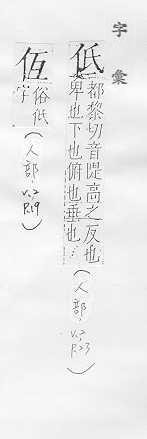 字彙
低 都黎切音隄高之反也
卑也下也俯也垂也…
(人部、
V.2
P.23)
仾 俗低
字
(人部、
V.2
P.19)